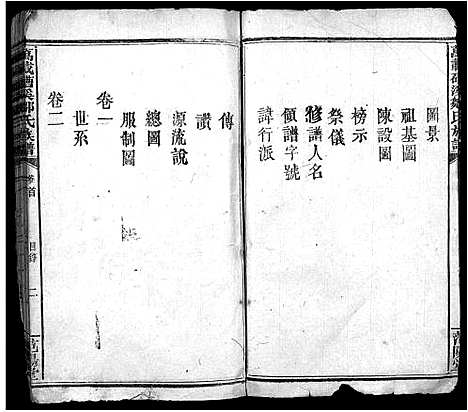 圖景
祖基圖
陳設圖
榜示
祭儀
修譜人名
領譜字號
諱行派
傳
讚
源流說
總圖
服制圖
卷一
世系
卷二
萬載
氏族譜
卷首
目錄
二